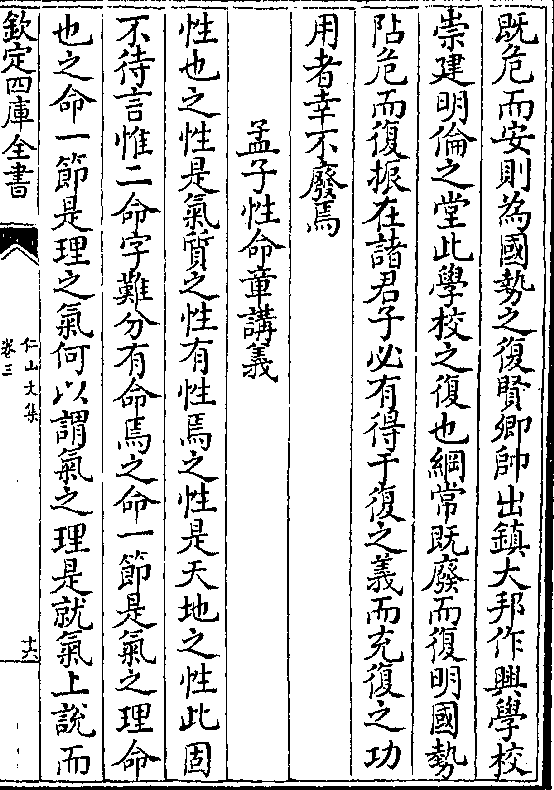 既危而安則為國勢之復賢卿帥出鎮大邦作興學校
崇建明倫之堂此學校之復也綱常既廢而復明國勢
阽危而復振在諸君子必有得于復之義而充復之功
用者幸不廢焉
孟子性命章講義
性也之性是氣質之性有性焉之性是天地之性此固
不待言惟二命字難分有命焉之命一節是氣之理命
也之命一節是理之氣何以謂氣之理是就氣上說而
欽定四庫全書
仁山文集
卷三
十六